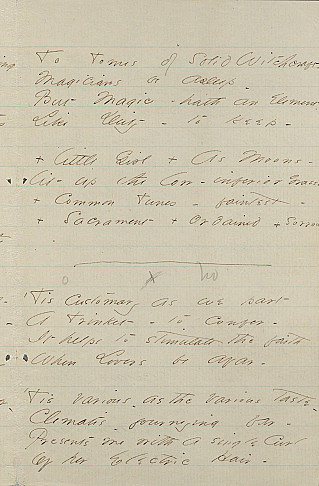 To Tomes of Solid Witchcraft -
Magicians be asleep -
But Magic - hath an Element
Like Deity - to keep -
+ little Girl + As Moons -
lit up the Con - inferior Grace
+ Common Tunes - faintest -
+ Sacrament + Ordained + Sorrow
x
'Tis Customary as we part
A Trinket - to confer -
It helps to stimulate the faith
When Lovers be afar -
'Tis various - as the various taste -
Clematis - journeying far -
Presents me with a single Curl
Of her Electric Hair -